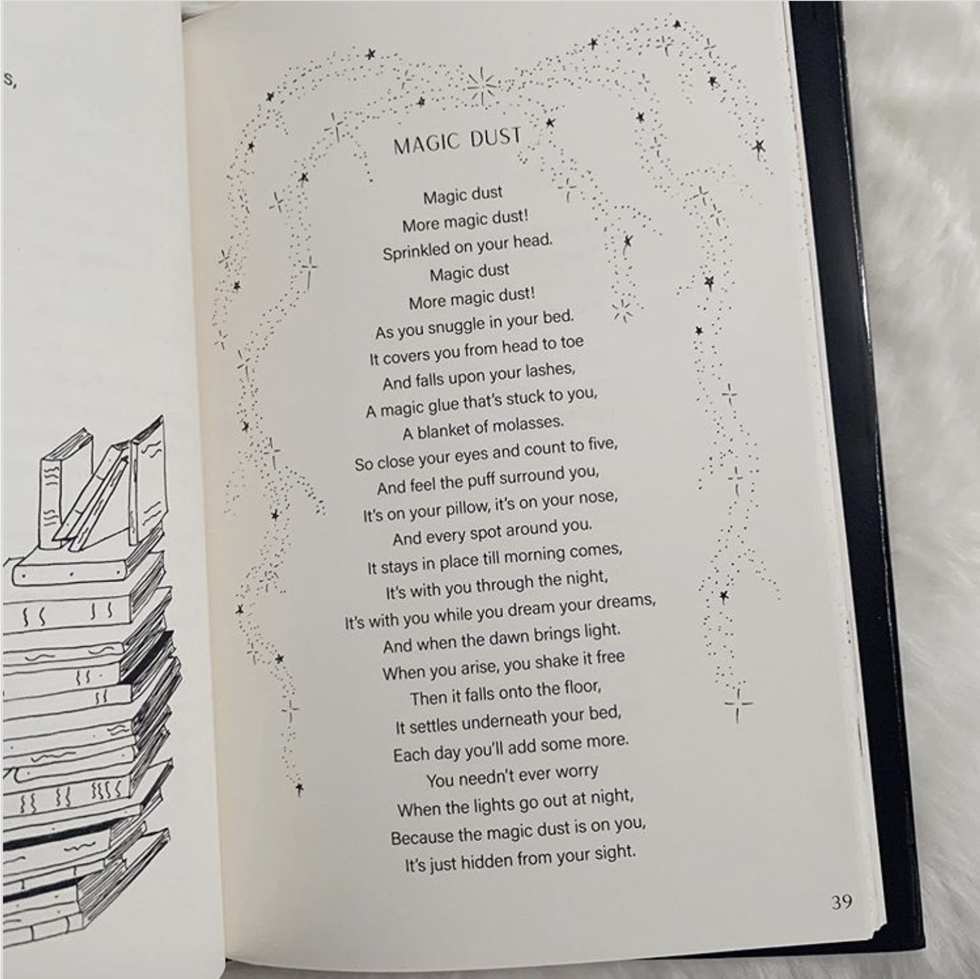 s,
MAGIC DUST
Magic dust
More magic dust!
Sprinkled on your head.
Magic dust
More magic dust!
As you snuggle in your bed.
It covers you from head to toe
And falls upon your lashes,
A magic glue that's stuck to you,
A blanket of molasses.
So close your eyes and count to five,
And feel the puff surround you,
It's on your pillow, it's on your nose,
And every spot around you.
It stays in place till morning comes,
It's with you through the night,
It's with you while you dream your dreams,
And when the dawn brings light.
When you arise, you shake it free
Then it falls onto the floor,
It settles underneath your bed,
Each day you'll add some more.
You needn't ever worry
When the lights go out at night,
Because the magic dust is on you,
It's just hidden from your sight.
39